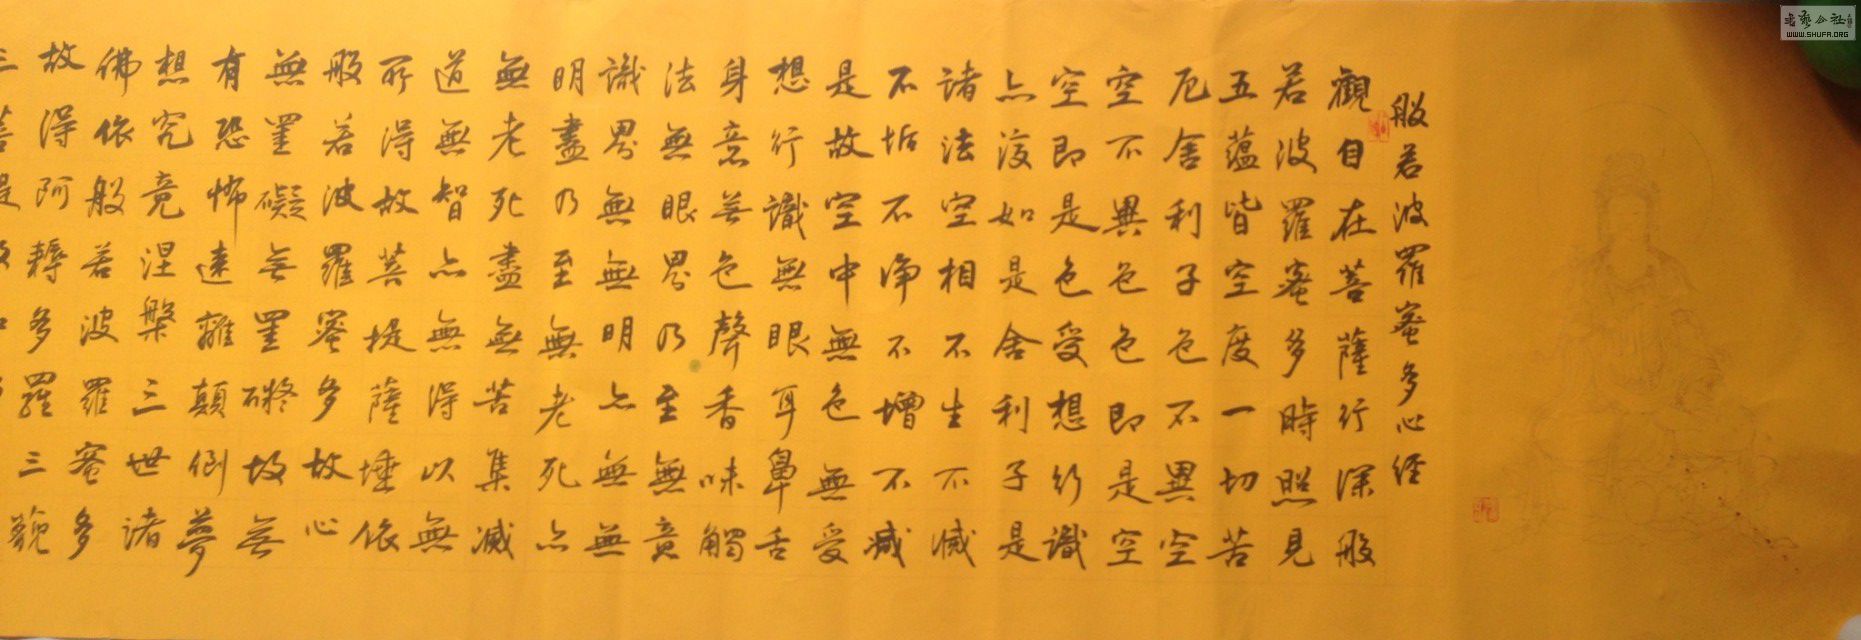 般若波羅蜜多心经
觀自在菩薩行深般
若波羅蜜多時照見
五蕴皆空度一切苦
厄舍利子色不異空
空不異色色即是空
空即是色受想行識
亦復如是舍利子是
諸法空相不生不滅
不垢不净不增不減
是故空中無色無受
想行識無眼耳鼻舌
身意無色聲香味觸
法無眼界乃至無意
識界無無明亦無無
明盡乃至無老死亦
無老死盡無苦集滅
道無智亦無得以無
所得故菩提薩埵依
般若波羅蜜多故心
無罣礙無罣礙故無
有恐怖遠離顛倒夢
想究竟涅槃三世諸
佛依般若波羅蜜多
故得阿耨多羅三藐
三菩提
WWW.SHUFA.ORG